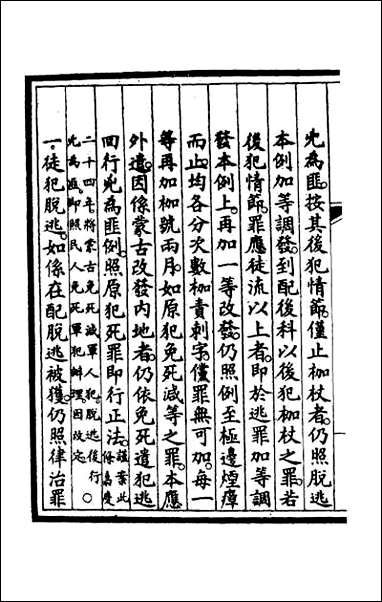 兇為匪。按其後犯情節。僅止枷杖者。仍照脫逃
本例加等調發。到配後科以後犯枷杖之罪。若
後犯情節。罪應徒流以上者。即於逃罪加等調
發本例上。再加一等改發。仍照例至極邊煙瘴
而止。均各分次數枷責刺字。僅罪無可加。每一
等再加枷號兩月。如原犯免死減等之罪。本應
外遣。因係蒙古改發內地者。仍依免死遣犯逃
回行兇為匪例。照原犯死罪即行正法。謹案此條嘉慶
二十四年。將蒙古免死減軍人犯脫逃後行
兇為匪。即照民人免死軍犯辦理。因改定。○
一。徒犯脫逃。如係在配脫逃被獲。仍照律治罪